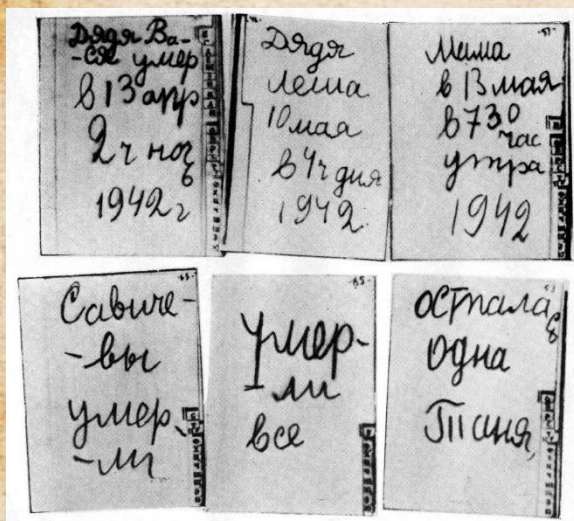 Дядя Ва-
-ся умер
в 13 апр
2 ч ночь
1942 г
Дядя
Леша
10 мая
в 4 ч дня
1942
Мама
в 13 мая
в 7 30
час
утра
1942
Савиче-
-вы
умер
-ли
умер-
ли
все
осталась
одна
Таня